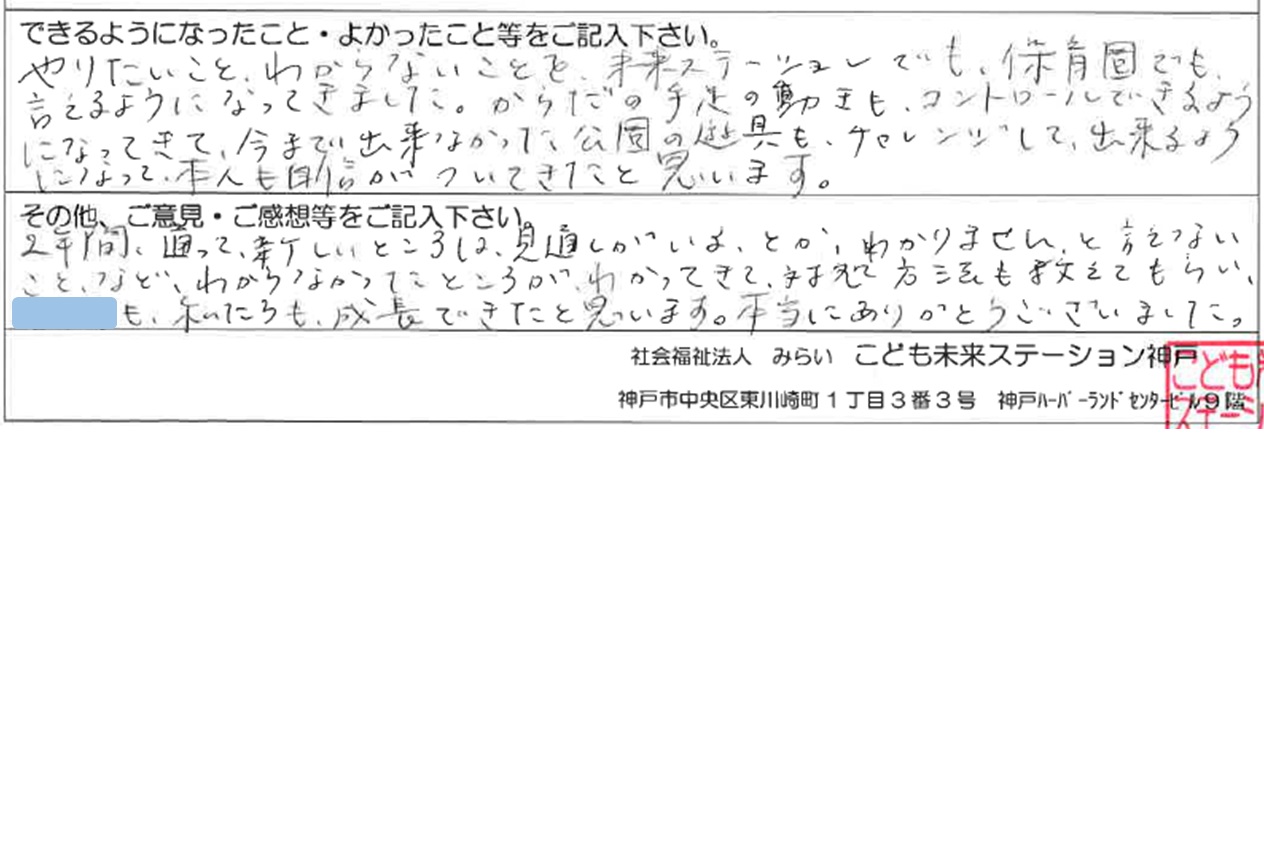 できるようになったこと・よかったこと等をご記入下さい。
やりたいこと、わからないことを、未来ステーションでも、保育園でも、
言えるようになってきました。からだの手足の動きも、コントロールできるよう
になってきて、今まで出来なかった公園の遊具も、チャレンジして、出来るよう
になって、本人も自信がついてきたと思います。
その他、ご意見・ご感想等をご記入下さい。
2年間、通って、新しいところは、見通しがいる、とか、わかりません、と言えない
こと、など、わからなかったところが、わかってきて、対処方法も教えてもらい、
も、私たちも、成長できたと思います。本当にありがとうございました。
社会福祉法人 みらい こども未来ステーション神戸
神戸市中央区東川崎町1丁目3番3号 神戸ハーバーランドセンタービル9階
こども
ステーシ